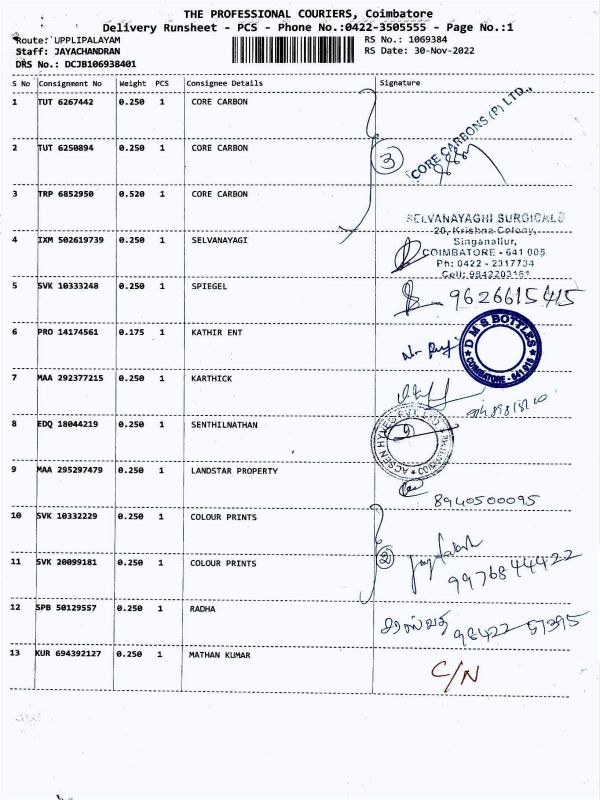 THE PROFESSIONAL COURIERS, Coimbatore
Delivery Runsheet - PCS - Phone No.:0422-3505555 - Page No.:1
Route: UPPLIPALAYAM RS No.: 1069384
Staff: JAYACHANDRAN RS Date: 30-Nov-2022
DRS No.: DCJB106938401
S No Consignment No Weight PCS Consignee Details Signature
1 TUT 6267442 0.250 1 CORE CARBON
CORE CARBONS (P) LTD.,
2 TUT 6250894 0.250 1 CORE CARBON
3
3 TRP 6852950 0.520 1 CORE CARBON
SELVANAYAGHI SURGICALS
20, Krishna Colony,
4 IXM 502619739 0.250 1 SELVANAYAGI Singanallur,
COIMBATORE - 641 005
Ph: 0422 - 2317734
Cell: 9842203161
5 SVK 10333248 0.250 1 SPIEGEL
9626615415
6 PRO 14174561 0.175 1 KATHIR ENT
DMS BOTTLES
COIMBATORE - 641 015
7 MAA 292377215 0.250 1 KARTHICK
8 EDQ 18044219 0.250 1 SENTHILNATHAN
9 MAA 295297479 0.250 1 LANDSTAR PROPERTY
8940500095
10 SVK 10332229 0.250 1 COLOUR PRINTS
11 SVK 20099181 0.250 1 COLOUR PRINTS
2
9976844422
12 SPB 50129557 0.250 1 RADHA
98422 57395
13 KUR 694392127 0.250 1 MATHAN KUMAR
C/N